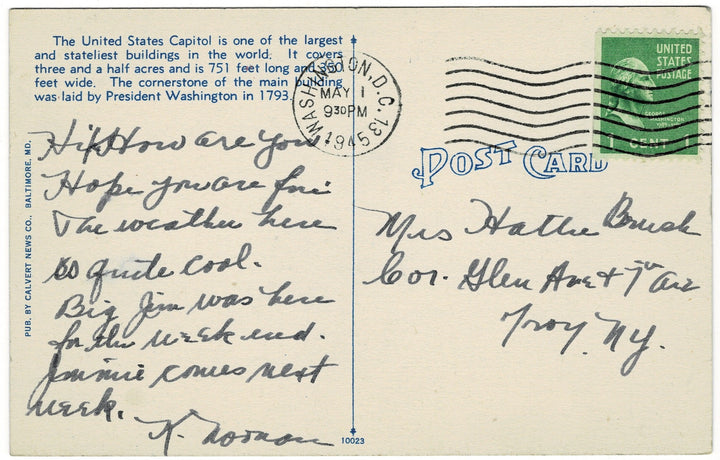 The United States Capitol is one of the largest
and stateliest buildings in the world. It covers
three and a half acres and is 751 feet long and 350
feet wide. The cornerstone of the main building
was laid by President Washington in 1793.
WASHINGTON, D.C. 135
MAY 1
9 30 PM
1945
UNITED
STATES
POSTAGE
GEORGE
WASHINGTON
1 CENT 1
POST CARD
PUB. BY CALVERT NEWS CO., BALTIMORE, MD.
Hi. How are you
Hope you are fine
The weather here
is quite cool.
Big Jim was here
for the week end.
Jimmie comes next
week.
K. Norman
Mrs Hattie Brush
Cor. Glen Ave & 7th Ave
Troy, N.Y.
10023